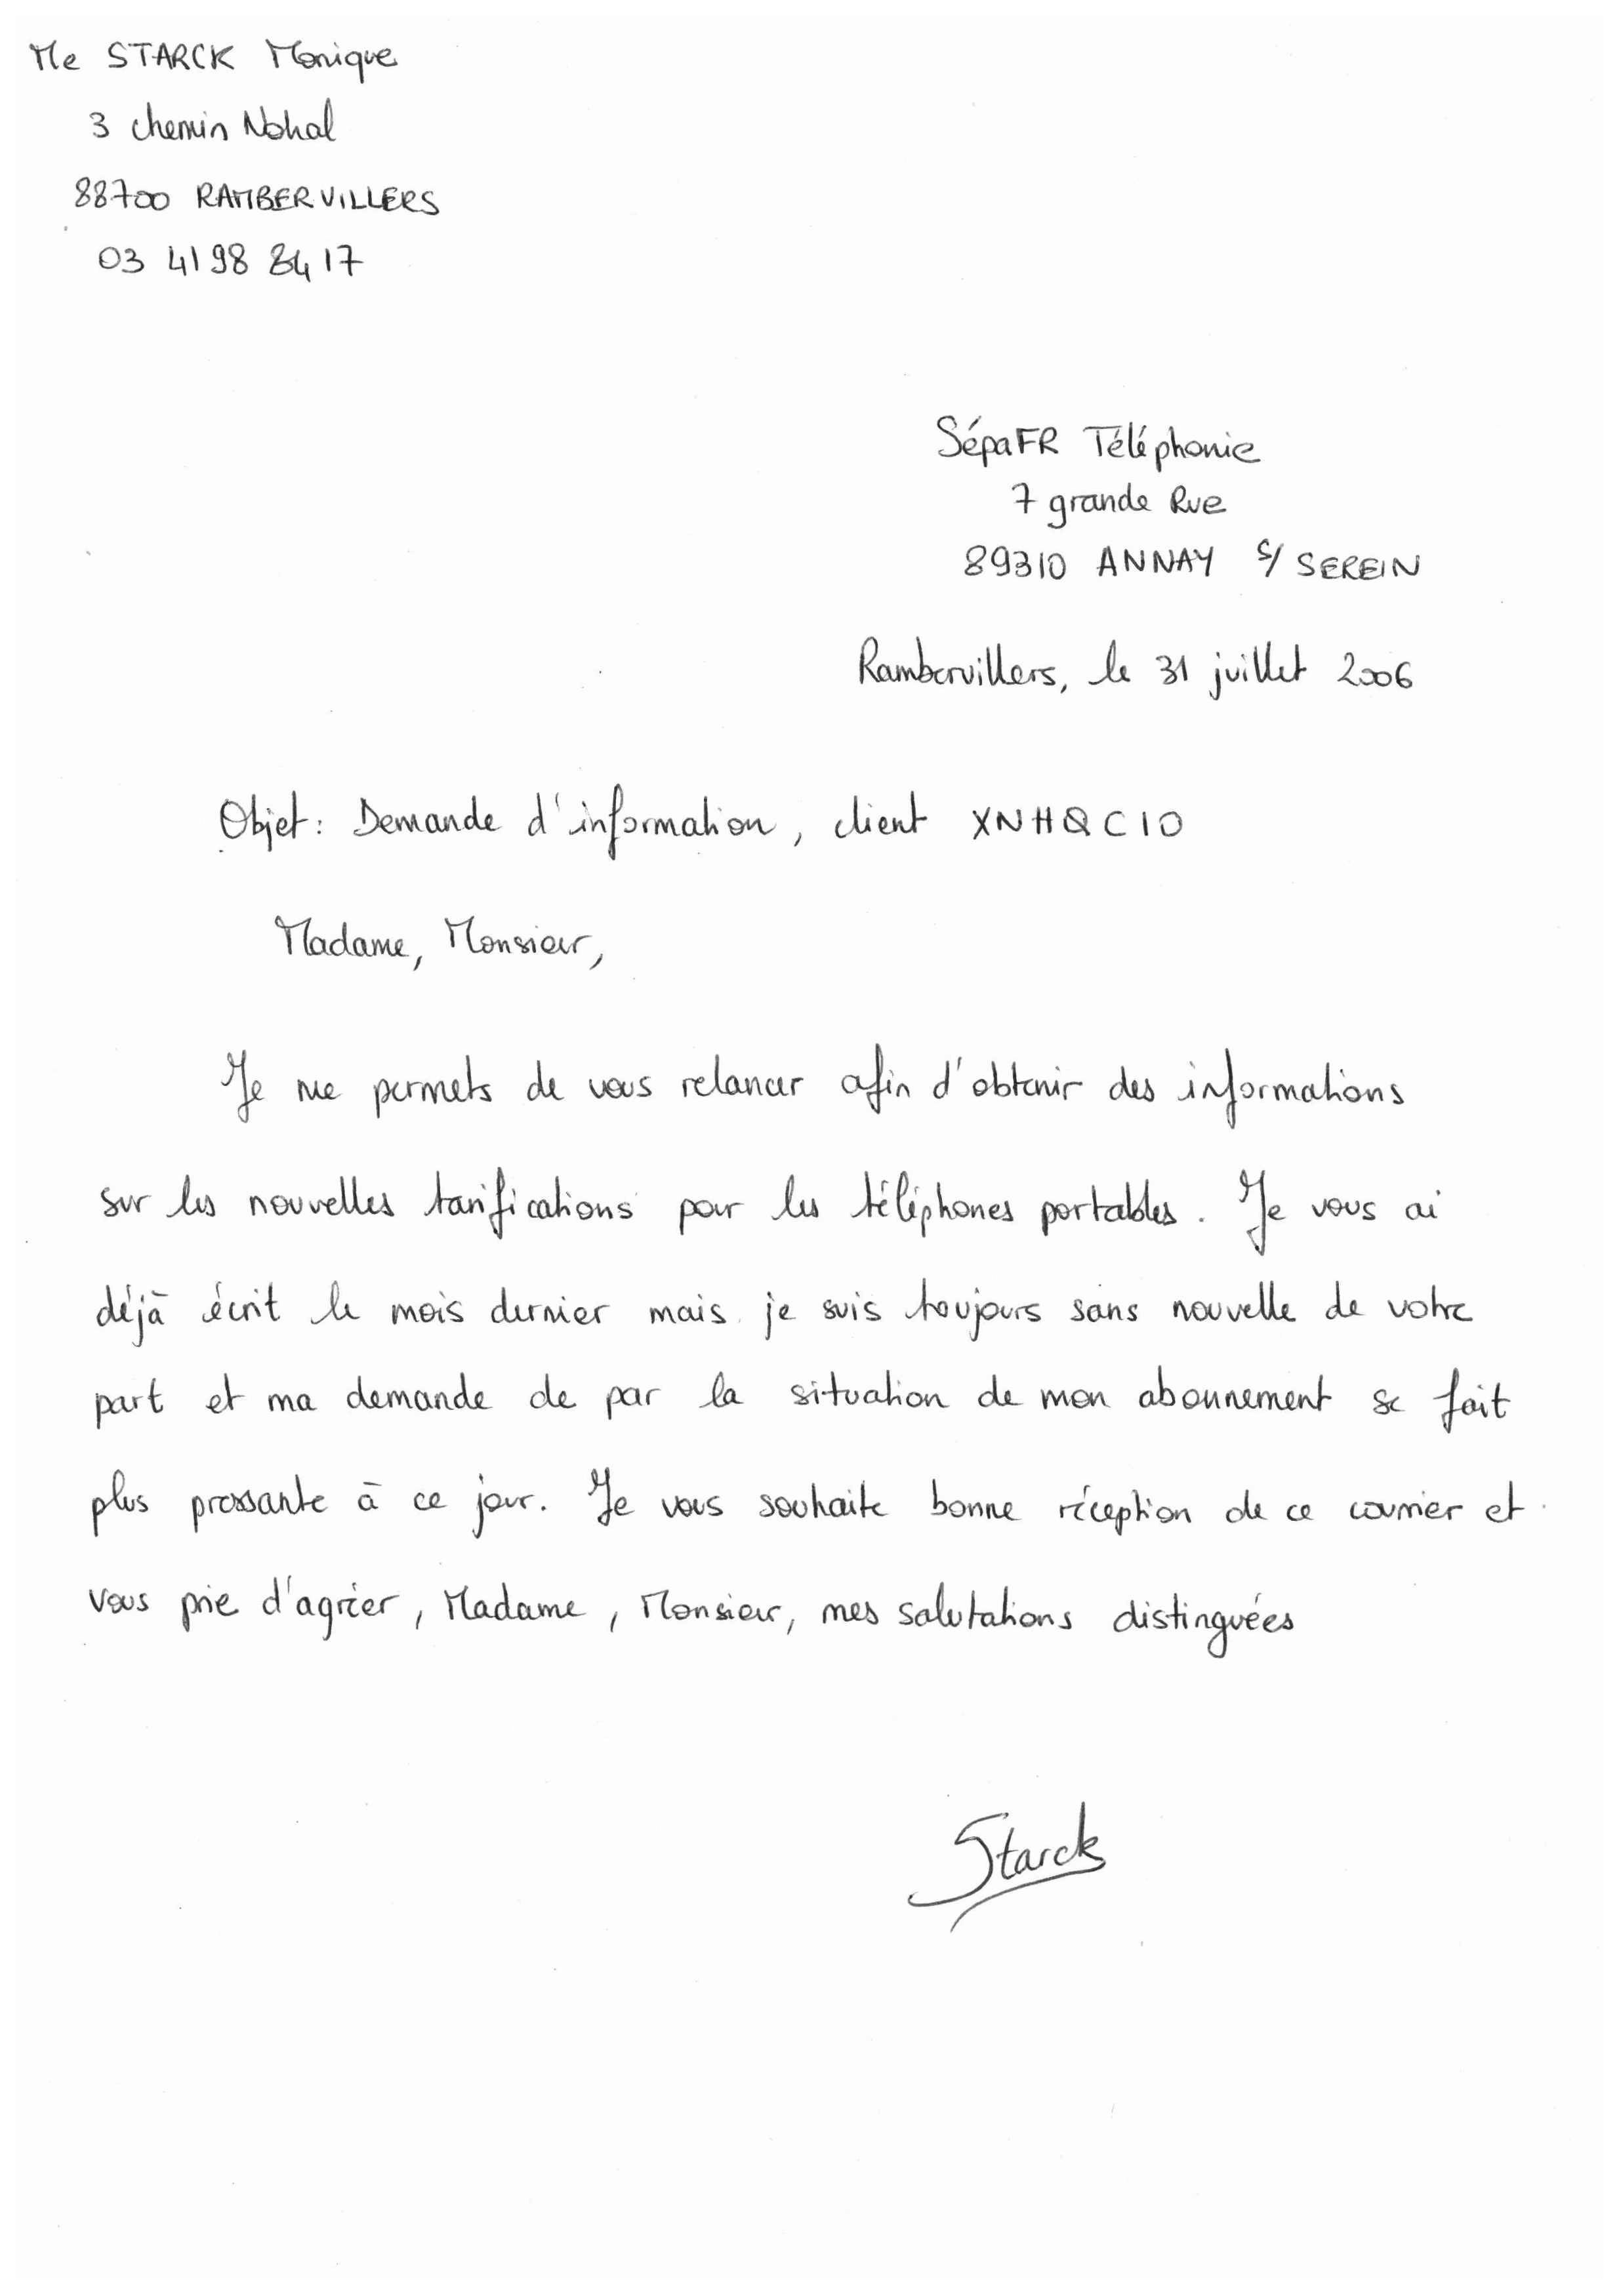 Me STARCK Monique
3 chemin Nohal
88700 RAMBERVILLERS
03 41 98 84 17
SépaFR Téléphonie
7 grande Rue
89310 ANNAY s/ SEREIN
Rambervillers, le 31 juillet 2006
Objet : Demande d'information, client XNHQC10
Madame, Monsieur,
Je me permets de vous relancer afin d'obtenir des informations
sur les nouvelles tarifications pour les téléphones portables. Je vous ai
déjà écrit le mois dernier mais je suis toujours sans nouvelle de votre
part et ma demande de par la situation de mon abonnement se fait
plus pressante à ce jour. Je vous souhaite bonne réception de ce courrier et
vous prie d'agréer, Madame, Monsieur, mes salutations distinguées
Starck